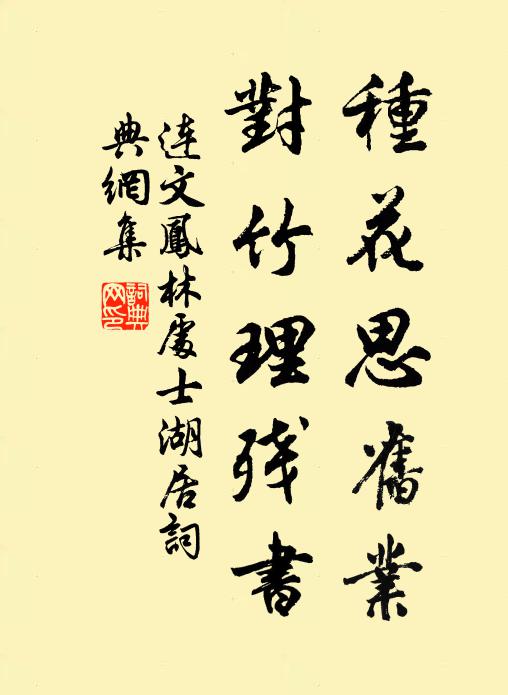 種花思舊業
對竹理残書
連文鳳林處士湖居詞
典網集
詞典
网印